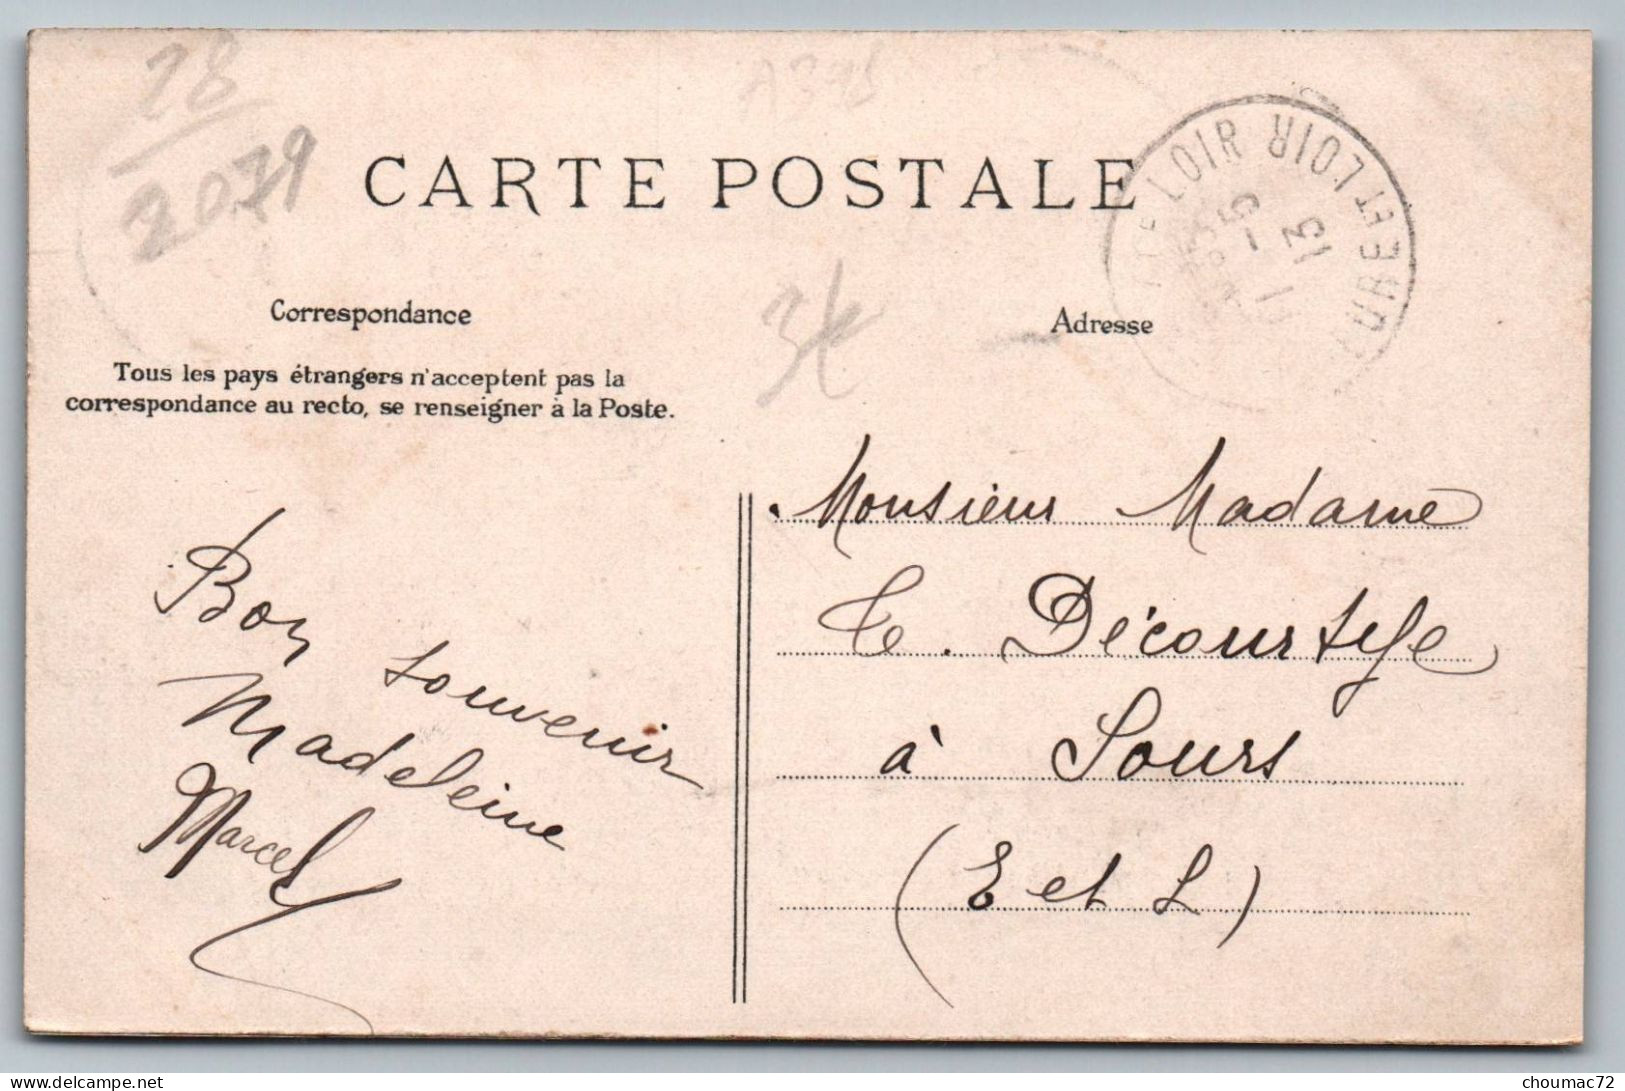 28
2079
CARTE POSTALE
LOIR
EURE ET LOIR
-5
13
Correspondance
3€
Adresse
Tous les pays étrangers n'acceptent pas la
correspondance au recto, se renseigner à la Poste.
Bon souvenir
Madeleine
Marcel
Monsieur Madame
Décourtye
à Sours
(E et L)
delcampe.net
choumac72